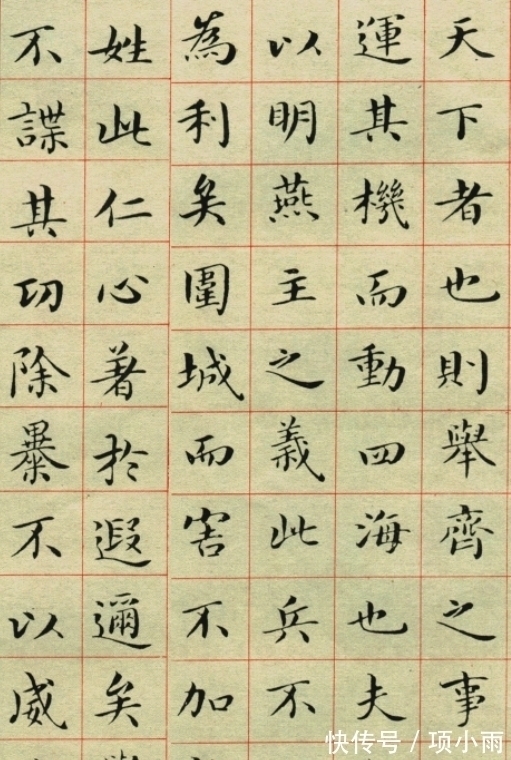 天下者也則舉齊之事
運其機而動四海也夫
以明燕主之義此兵不
為利矣圍城而害不加
姓此仁心著於遐邇矣
不謀其功除暴不以威
快传号 / 项小雨